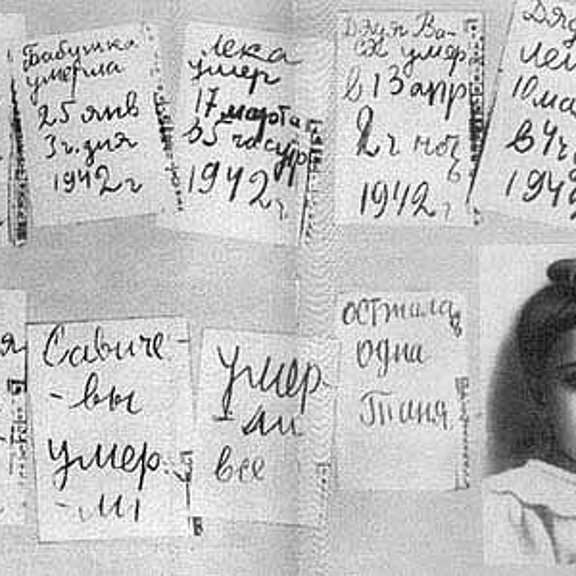 Бабушка
умерла
25 янв
3 ч. дня
1942 г
Лека
умер
17 марта
в 5 час утр
1942 г.
Дядя Ва-
ся умер
в 13 апр
2 ч ноч
1942 г
Дяд
Ле
10 ма
в 4 ч
194
я
Савиче-
-вы
умер-
-ли
Умер-
-ли
все
Осталась
одна
Таня